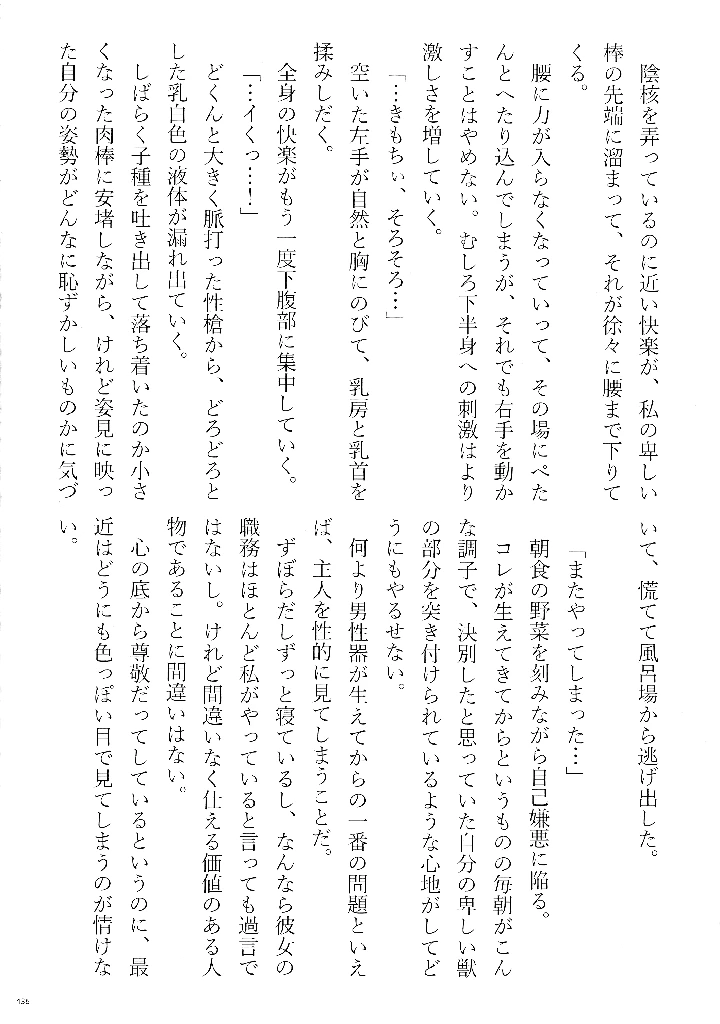 陰核を弄っているのに近い快楽が、私の卑しい
棒の先端に溜まって、それが徐々に腰まで下りて
くる。
腰に力が入らなくなっていって、その場にぺた
んとへたり込んでしまうが、それでも右手を動か
すことはやめない。むしろ下半身への刺激はより
激しさを増していく。
「…きもちぃ、そろそろ…」
空いた左手が自然と胸にのびて、乳房と乳首を
揉みしだく。
全身の快楽がもう一度下腹部に集中していく。
「…イくっ…！」
どくんと大きく脈打った性槍から、どろどろと
した乳白色の液体が漏れ出ていく。
しばらく子種を吐き出して落ち着いたのか小さ
くなった肉棒に安堵しながら、けれど姿見に映っ
た自分の姿勢がどんなに恥ずかしいものかに気づ
いて、慌てて風呂場から逃げ出した。
「またやってしまった…」
朝食の野菜を刻みながら自己嫌悪に陥る。
コレが生えてきてからというものの毎朝がこん
な調子で、決別したと思っていた自分の卑しい獣
の部分を突き付けられているような心地がしてど
うにもやるせない。
何より男性器が生えてからの一番の問題といえ
ば、主人を性的に見てしまうことだ。
ずぼらだしずっと寝ているし、なんなら彼女の
職務はほとんど私がやっていると言っても過言で
はないし。けれど間違いなく仕える価値のある人
物であることに間違いはない。
心の底から尊敬だってしているというのに、最
近はどうにも色っぽい目で見てしまうのが情けな
い。